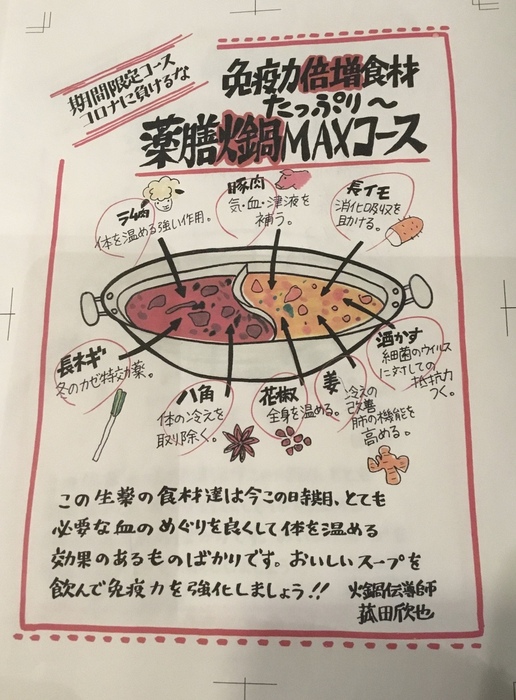 期間限定コース
コロナに負けるな
免疫力倍増食材
たっぷり～
薬膳火鍋MAXコース
ラム肉
体を温める強い作用。
豚肉
気・血・津液を
補う。
長イモ
消化吸収を
助かける。
長ネギ
冬のカゼ特効薬。
八角
体の冷えを
取り除く。
花椒
全身を温める。
姜
冷えの
改善
肺の機能を
高める。
酒かす
細菌のウィルス
に対しての
抵抗力
つく。
この生薬の食材達は今この時期、とても
必要な血のめぐりを良くして体を温める
効果のあるものばかりです。おいしいスープを
飲んで免疫力を強化しましょう!!
火鍋伝導師
菰田欣也